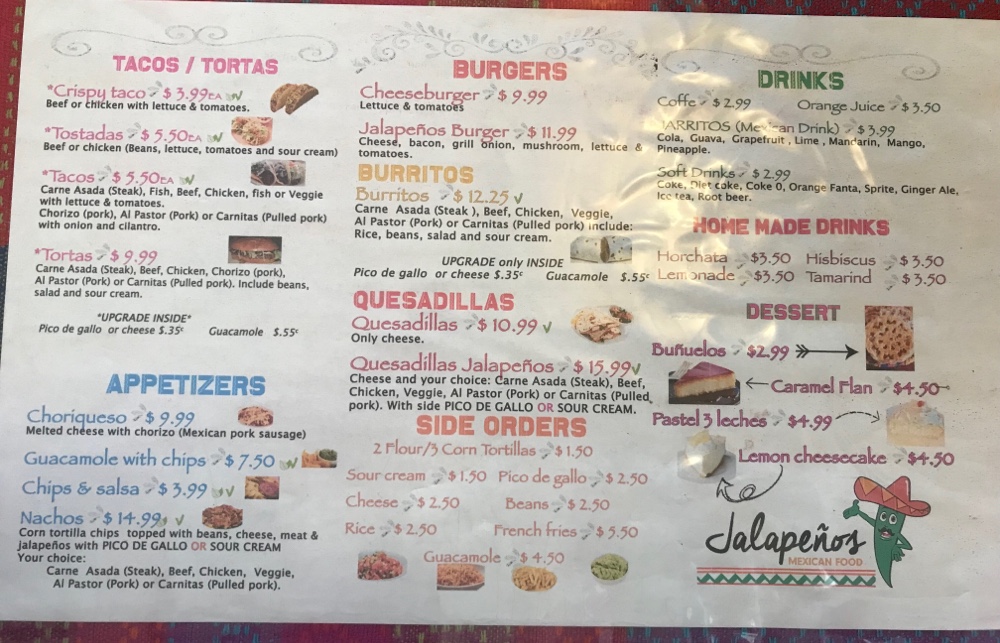 TACOS / TORTAS
*Crispy taco $3.99EA
Beef or chicken with lettuce & tomatoes.
*Tostadas $5.50EA
Beef or chicken (Beans, lettuce, tomatoes and sour cream)
*Tacos $5.50EA
Carne Asada (Steak), Fish, Beef, Chicken, fish or Veggie
with lettuce & tomatoes.
Chorizo (pork), Al Pastor (Pork) or Carnitas (Pulled pork)
with onion and cilantro.
*Tortas $9.99
Carne Asada (Steak), Beef, Chicken, Chorizo (pork),
Al Pastor (Pork) or Carnitas (Pulled pork). Include beans,
salad and sour cream.
*UPGRADE INSIDE*
Pico de gallo or cheese $.35¢ Guacamole $.55¢
APPETIZERS
Choriqueso $9.99
Melted cheese with chorizo (Mexican pork sausage)
Guacamole with chips $7.50
Chips & salsa $3.99
Nachos $14.99
Corn tortilla chips topped with beans, cheese, meat &
jalapeños with PICO DE GALLO OR SOUR CREAM
Your choice:
Carne Asada (Steak), Beef, Chicken, Veggie,
Al Pastor (Pork) or Carnitas (Pulled pork).
BURGERS
Cheeseburger $9.99
Lettuce & tomatoes
Jalapeños Burger $11.99
Cheese, bacon, grill onion, mushroom, lettuce &
tomatoes.
BURRITOS
Burritos $12.25
Carne Asada (Steak ), Beef, Chicken, Veggie,
Al Pastor (Pork) or Carnitas (Pulled pork) include:
Rice, beans, salad and sour cream.
UPGRADE only INSIDE
Pico de gallo or cheese $.35¢ Guacamole $.55¢
QUESADILLAS
Quesadillas $10.99
Only cheese.
Quesadillas Jalapeños $15.99
Cheese and your choice: Carne Asada (Steak), Beef,
Chicken, Veggie, Al Pastor (Pork) or Carnitas (Pulled
pork). With side PICO DE GALLO OR SOUR CREAM.
SIDE ORDERS
2 Flour/3 Corn Tortillas $1.50
Sour cream $1.50 Pico de gallo $2.50
Cheese $2.50 Beans $2.50
Rice $2.50 French fries $5.50
Guacamole $4.50
DRINKS
Coffe $2.99 Orange Juice $3.50
JARRITOS (Mexican Drink) $3.99
Cola, Guava, Grapefruit , Lime , Mandarin, Mango,
Pineapple.
Soft Drinks $2.99
Coke, Diet coke, Coke 0, Orange Fanta, Sprite, Ginger Ale,
Ice tea, Root beer.
HOME MADE DRINKS
Horchata $3.50 Hisbiscus $3.50
Lemonade $3.50 Tamarind $3.50
DESSERT
Buñuelos $2.99
Caramel Flan $4.50
Pastel 3 leches $4.99
Lemon cheesecake $4.50
Jalapeños
MEXICAN FOOD